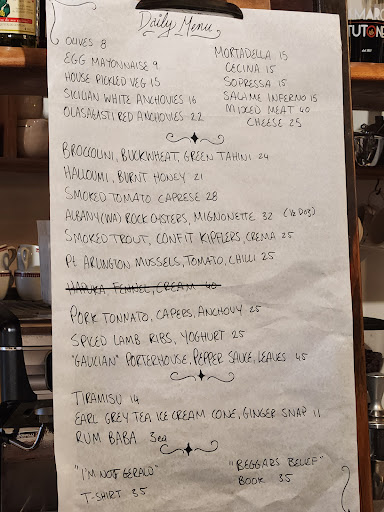 Daily Menu
OLIVES 8
EGG MAYONNAISE 9
HOUSE PICKLED VEG 15
SICILIAN WHITE ANCHOVIES 16
OLASAGASTI RED ANCHOVIES 22
MORTADELLA 15
CECINA 15
SOPRESSA 15
SALAME INFERNO 15
MIXED MEAT 40
CHEESE 25
BROCCOLINI, BUCKWHEAT, GREEN TAHINI 24
HALLOUMI, BURNT HONEY 21
SMOKED TOMATO CAPRESE 28
ALBANY (WA) ROCK OYSTERS, MIGNONETTE 32 (½ Doz)
SMOKED TROUT, CONFIT KIPFLERS, CREMA 25
Pt ARLINGTON MUSSELS, TOMATO, CHILLI 25
HAPUKA, FENNEL, CREAM 40
PORK TONNATO, CAPERS, ANCHOVY 25
SPICED LAMB RIBS, YOGHURT 25
"GAULIAN" PORTERHOUSE, PEPPER SAUCE, LEAVES 45
TIRAMISU 14
EARL GREY TEA ICE CREAM CONE, GINGER SNAP 11
RUM BABA 3ea
"I'M NOT GERALD"
T-SHIRT 35
"BEGGARS BELIEF"
BOOK 35